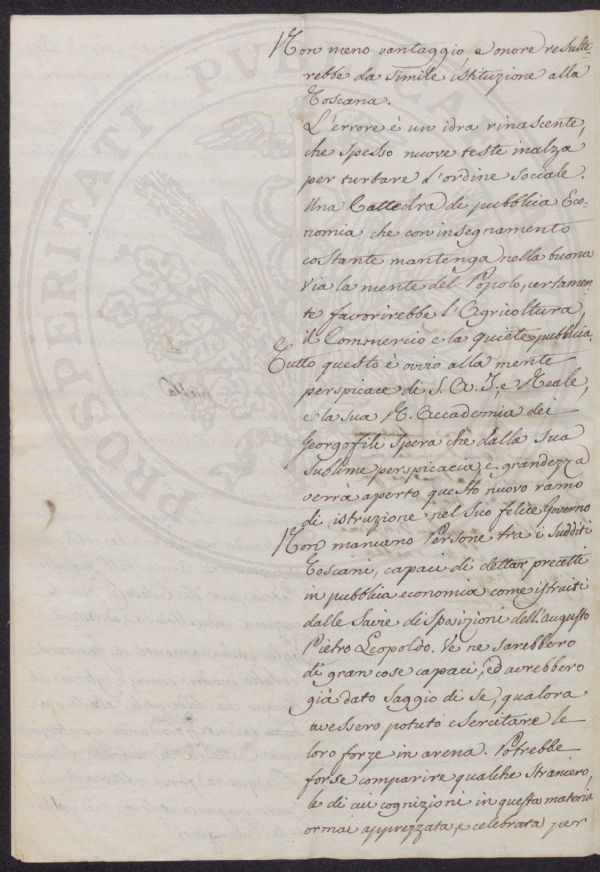 Non meno vantaggio e onore resulte-
rebbe da simile istituzione alla
Toscana.
L'errore è un idra rinascente,
che spesso nuove teste inalza
per turbare l'ordine sociale.
Una Cattedra di pubblica Eco-
nomia che con insegnamento
costante mantenga nella buona
via la mente del Popolo, certamen-
te favorirebbe l'Agricoltura,
il Commercio e la quiete pubblica.
Tutto questo è ovvio alla mente
perspicace di S. A. I. e Reale,
e la sua R. Accademia dei
Georgofili spera che dalla sua
sublime perspicacia, e grandezza
verrà aperto questo nuovo ramo
di istruzione nel suo felice Governo
Non mancano Persone tra i sudditi
Toscani, capaci di dettar precetti
in pubblica economia come istruiti
dalle Savie disposizioni dell'augusto
Pietro Leopoldo. Ve ne sarebbero
di gran cose capaci, ed avrebbero
già dato saggio di se, qualora
avessero potuto esercitare le
loro forze in arena. Potrebbe
forse comparire qualche straniero,
le di cui cognizioni in questa materia
ormai apprezzata, e celebrata per
PROSPERITATI PUBLICAE